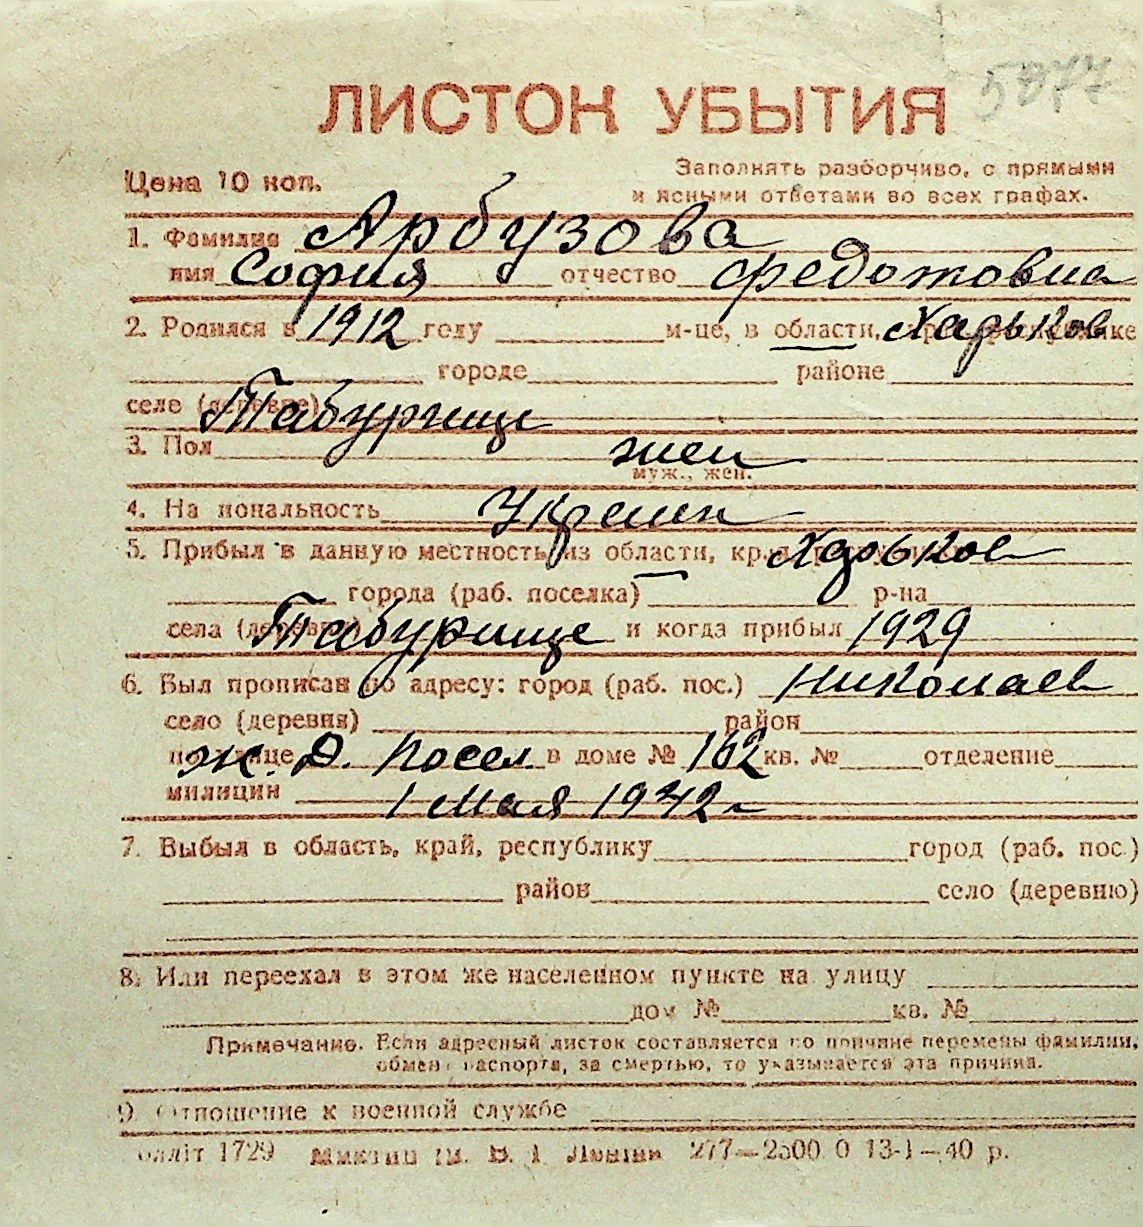 5877
ЛИСТОК УБЫТИЯ
Цена 10 коп.
Заполнять разборчиво, с прямыми
и ясными ответами во всех графах.
1. Фамилия Арбузова
имя София отчество Федотовна
2. Родился в 1912 году м-це, в области, Харьков
городе районе
селе (деревне) Табурище
3. Пол жен
муж., жен.
4. Национальность Украин
5. Прибыл в данную местность из области, Харьков
города (раб. поселка) р-на
села (деревни) Табурище и когда прибыл 1929
6. Был прописан по адресу: город (раб. пос.) Николаев
село (деревня) район
по улице Ж. Д. посел в доме № 162 кв. № отделение
милиции 1 мая 1942 г
7. Выбыл в область, край, республику город (раб. пос.)
район село (деревню)
8. Или переехал в этом же населенном пункте на улицу
дом № кв. №
Примечание. Если адресный листок составляется по причине перемены фамилии,
обмена паспорта, за смертью, то указывается эта причина.
9. Отношение к военной службе
1729 277—2500 0 13-1—40 р.